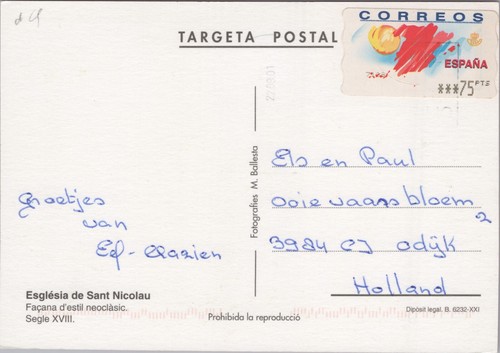 TARGETA POSTAL
CORREOS
ESPAÑA
***75 PTS
Groetjes
van
Els en Paul
Ooievaarsbloem
2
3984 CJ Odijk
Holland
Fotografies M. Ballesta
Església de Sant Nicolau
Façana d'estil neoclàsic.
Segle XVIII.
Prohibida la reproducció
Dipòsit legal. B. 6232-XXI